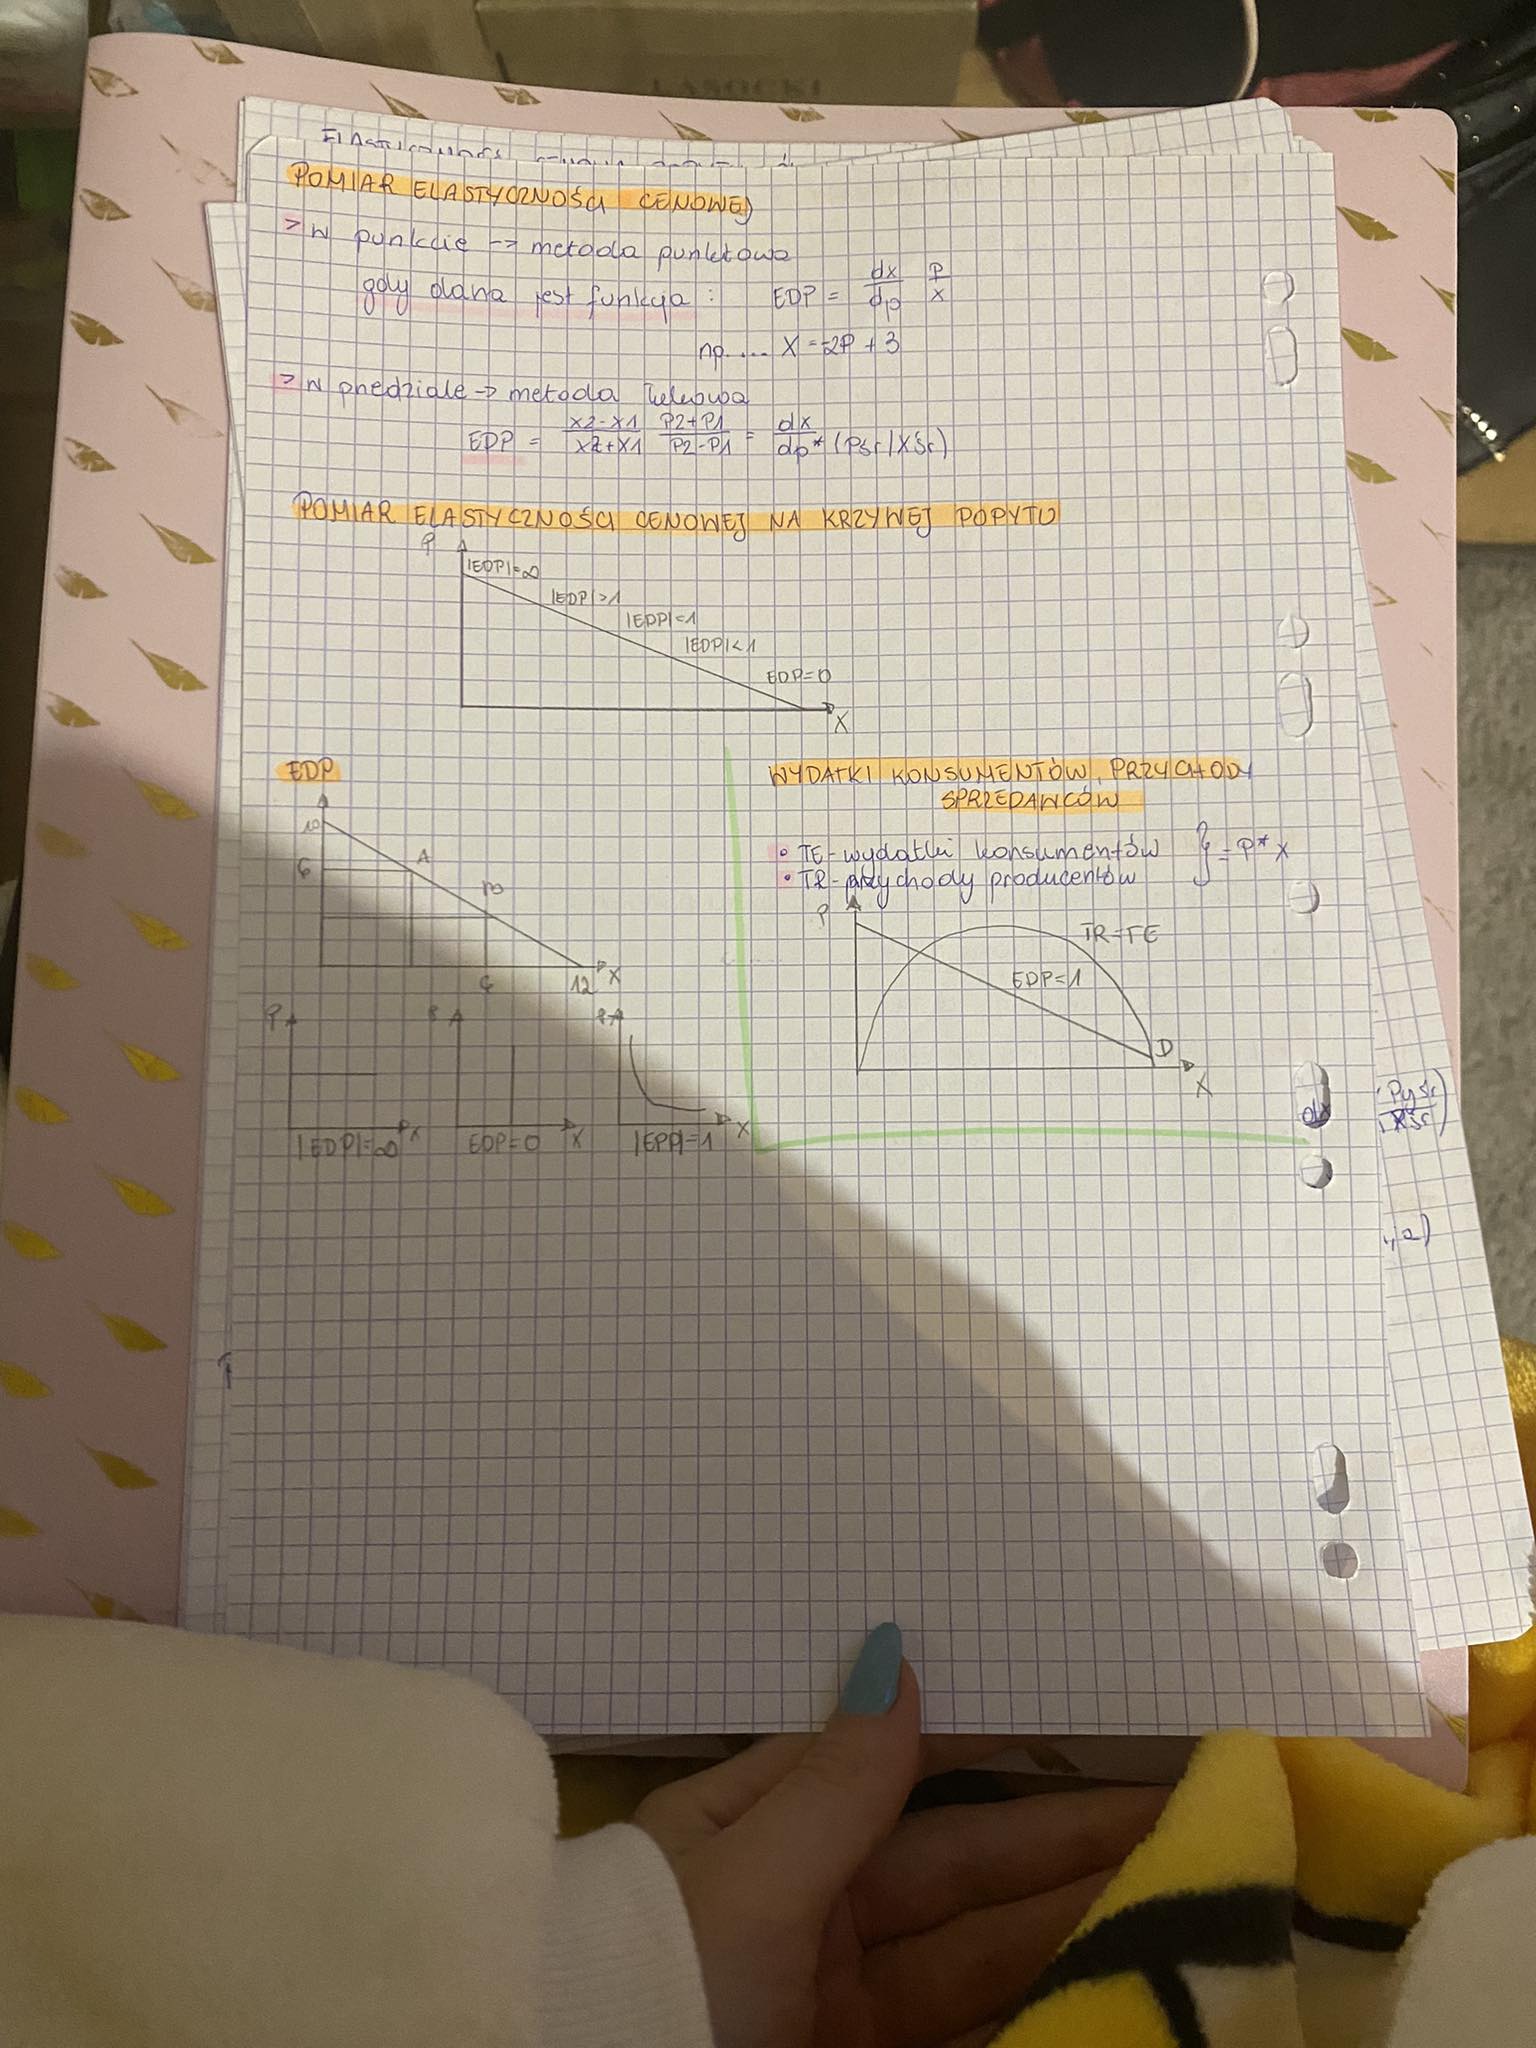 LASOCKI
POMIAR ELASTYCZNOŚCI CENOWEJ
> w punkcie -> metoda punktowa
gdy dana jest funkcja : EDP = dx/dp P/x
np.... X = -2P + 3
> w przedziale -> metoda łukowa
EDP = x2-x1/x2+x1 P2+P1/P2-P1 = dx/dp * (Pśr/Xśr)
POMIAR ELASTYCZNOŚCI CENOWEJ NA KRZYWEJ POPYTU
P
|EDP|=∞
|EDP|>1
|EDP|=1
|EDP|<1
EDP=0
X
EDP
10
6
A
B
6
12
X
P
|EDP|=∞
X
P
EDP=0
X
P
|EPP|=1
X
WYDATKI KONSUMENTÓW, PRZYCHODY
SPRZEDAWCÓW
• TE-wydatki konsumentów } = P* X
• TR-przychody producentów
P
TR=TE
EDP=1
D
X
dx
Pyśr
Xśr)